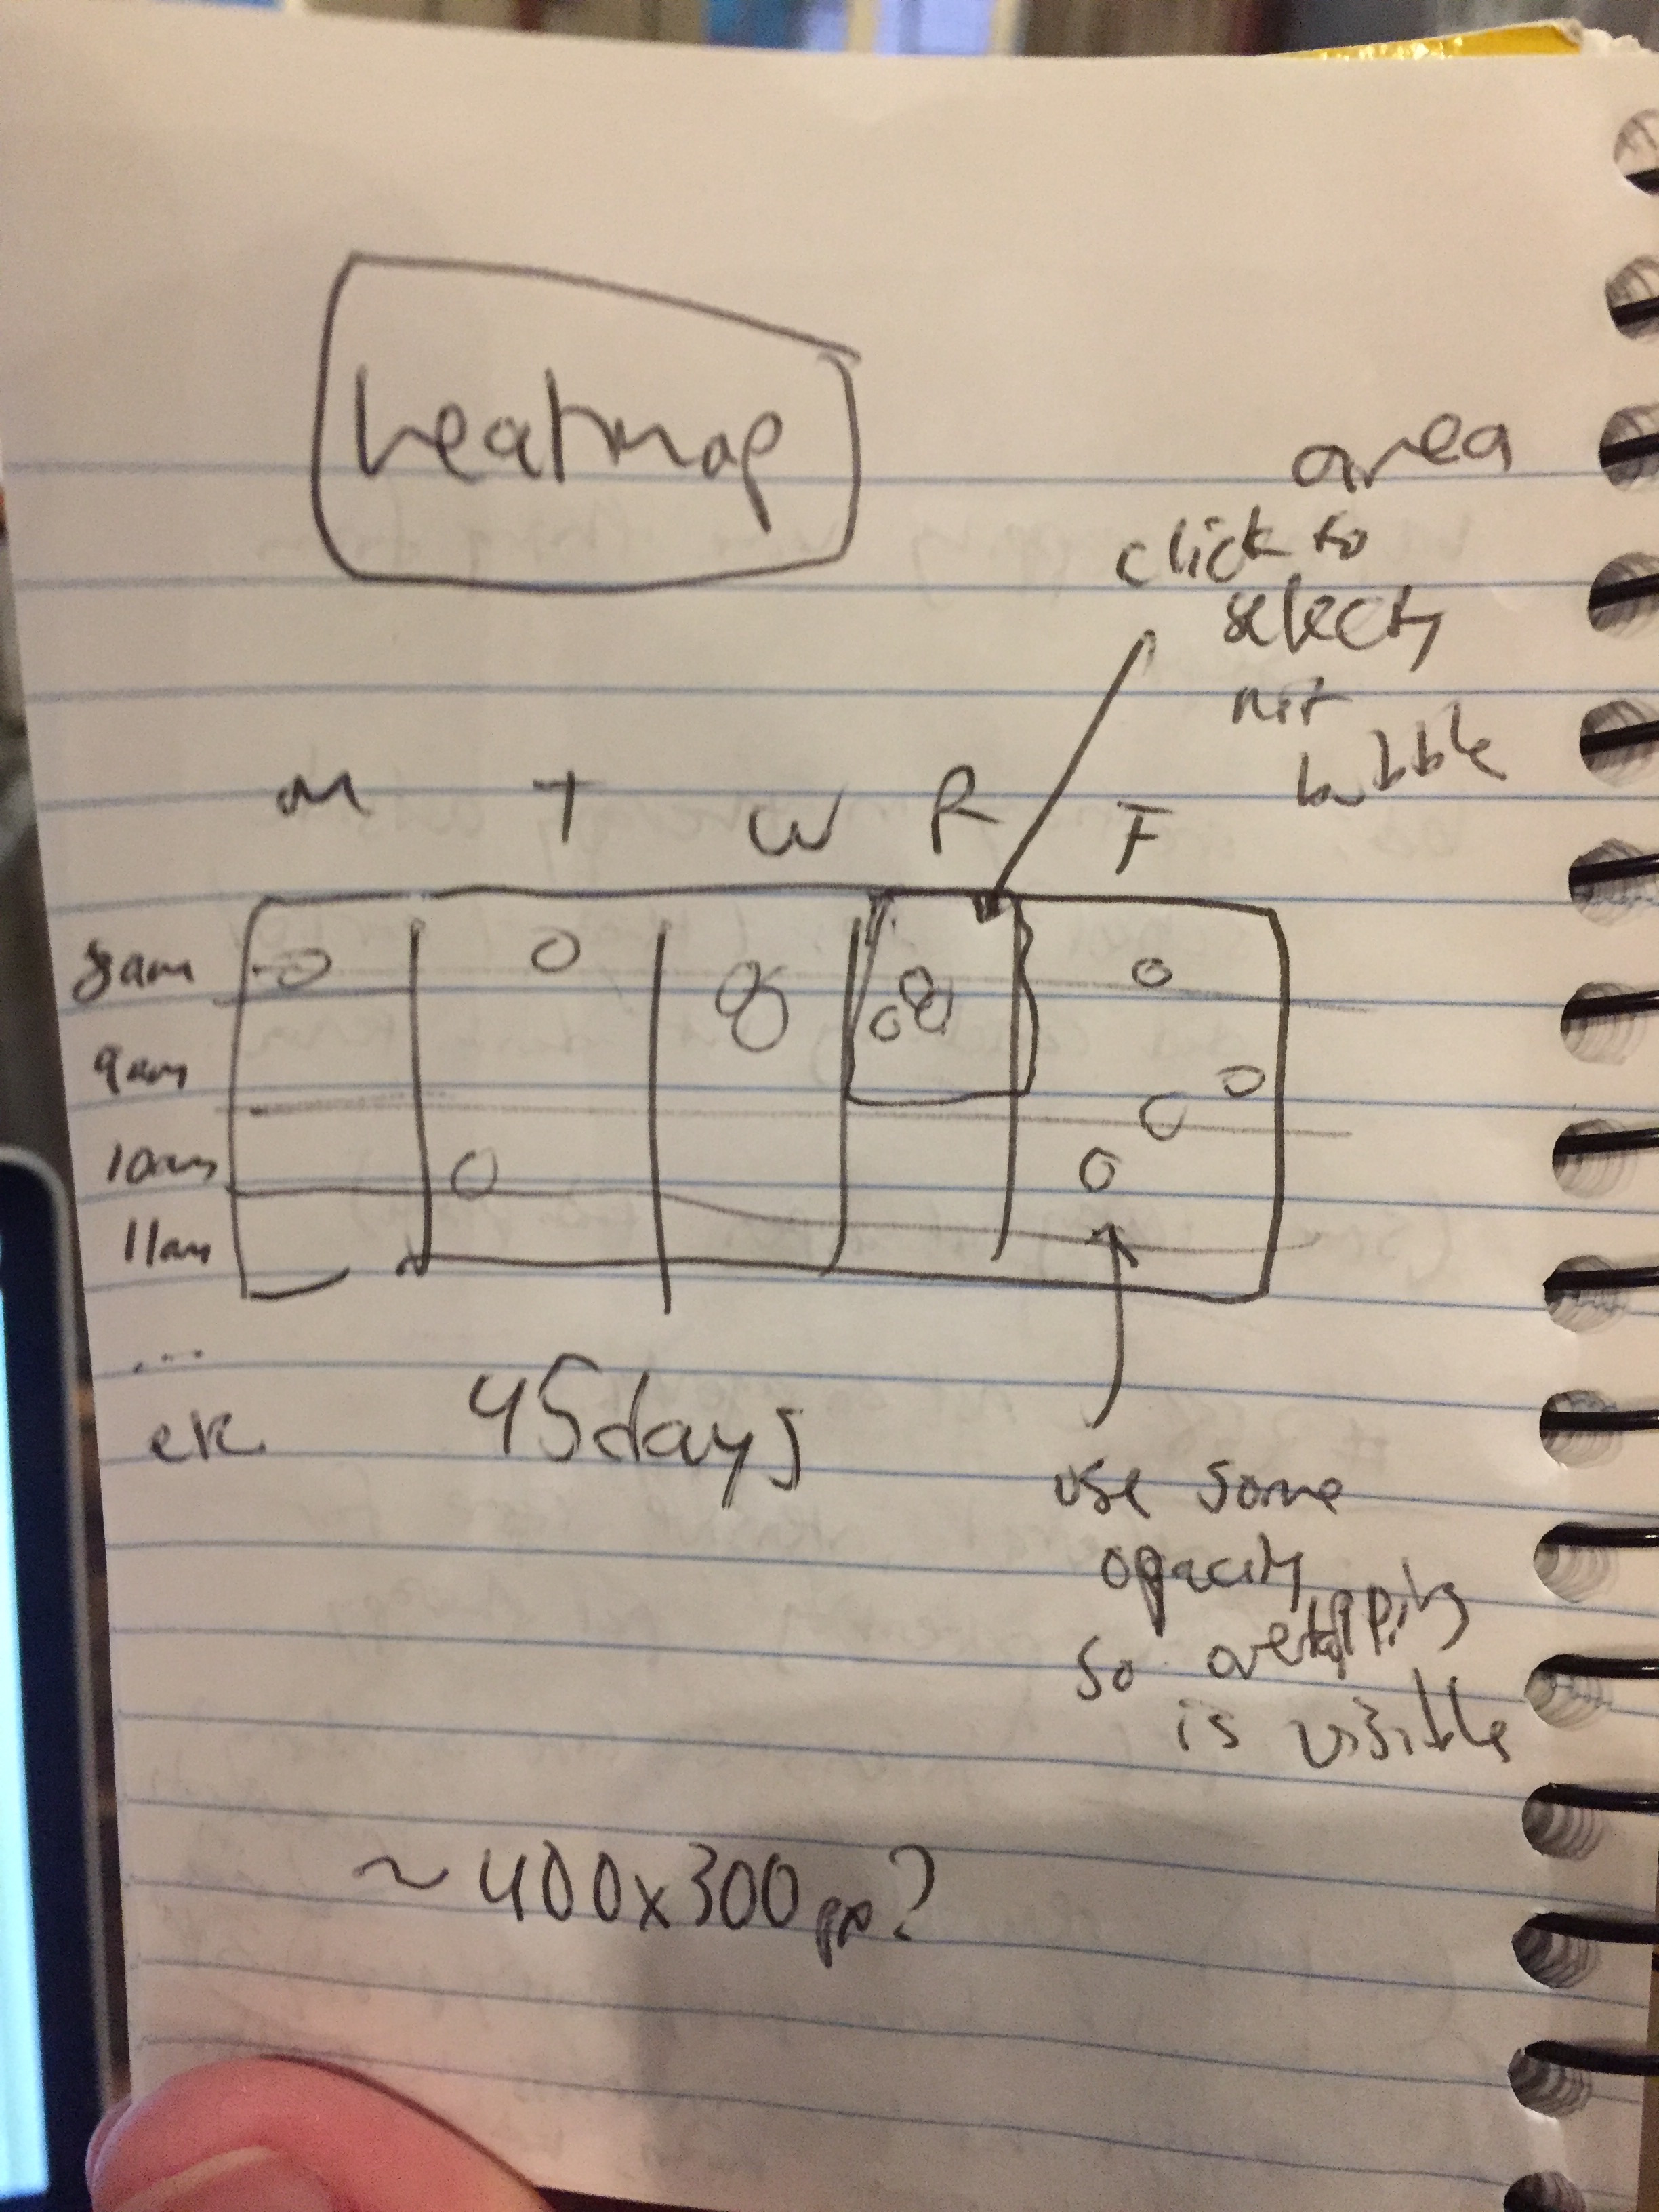 heatmap
area
click to
select,
not
bubble
M T W R F
8am
9am
10am
11am
...
etc
45days
use some
opacity
so overlapping
is visible
~400x300px?